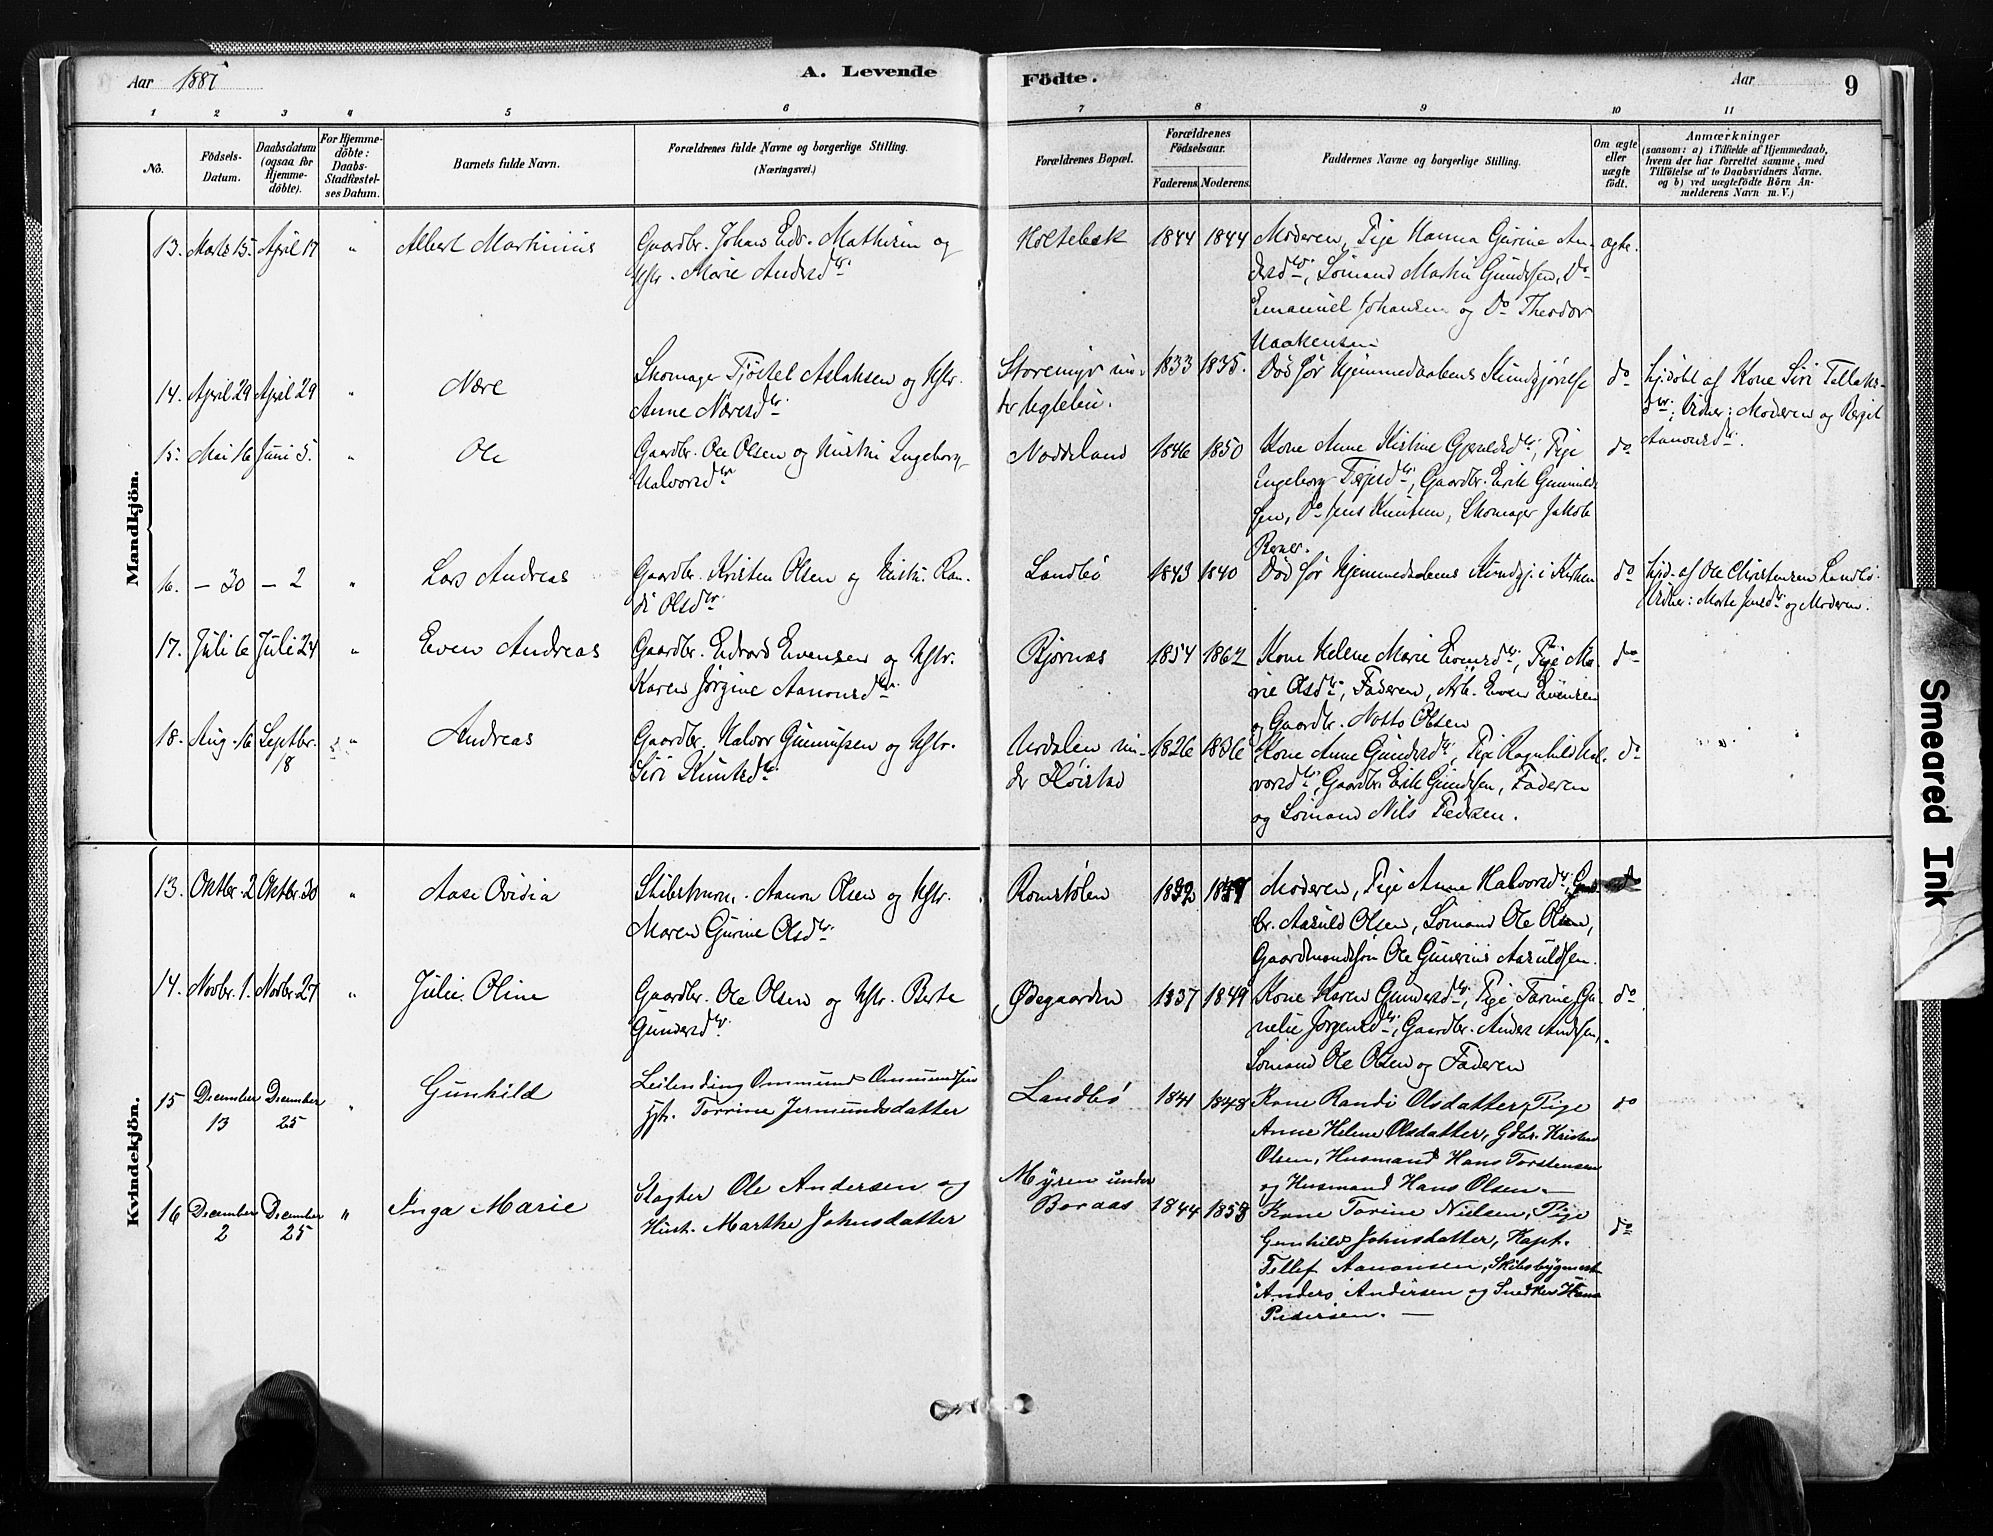 Aar 1881
A. Levende
Födte.
Aar
9
1 2 3 4 5 6 7 8 9 10 11
No.
Födsels-
Datum.
Daabsdatum
(ogsaa for
Hjemme-
döbte).
For Hjemme-
döbte:
Daabs-
Stadfæstel-
ses Datum.
Barnets fulde Navn.
Forældrenes fulde Navne og borgerlige Stilling.
(Næringsvei.)
Forældrenes Bopæl.
Forældrenes
Födselsaar.
Faderens. Moderens.
Faddernes Navne og borgerlige Stilling.
Om ægte
eller
uægte
födt.
Anmærkninger
(saasom: a) i Tilfælde af Hjemmedaab,
hvem der har forrettet samme, med
Tilföielse af to Daabsvidners Navne.
og b) ved uægtefödte Börn An-
melderens Navn m. V.)
Mandkjön.
13. Marts 15. April 17 " Albert Martinius
Gaardbr. Johans Edv. Mathisen og
Hstr. Marie Andersdtr.
Holtebæk 1844 1844
Moderen, Pige Hanna Gurine An-
dersdtr, Sömand Martin Gundersen, Do
Emanuel Johansen og Do Theodor
Haakensen
ægte.
14. April 29 April 29 " Nære
Skomager Tjöstel Aslaksen og Hstr.
Anne Næresdtr.
Storemyr un-
der Ugleliu.
1833 1835.
Död før Hjemmedaabens Kundgjørelse
do
hj.döbt af Kone Siri Tellefs-
dtr.; Vidner: Moderen og Bergit
Aanonsdtr.
15. Mai 16 Juni 5. " Ole
Gaardbr. Ole Olsen og Hustru Ingeborg
Halvorsdtr
Noddeland 1846 1850
Kone Anne Kistine Gjeruldsdtr, Pige
Ingeborg Terjesdtr, Gaardbr. Erik Gunnuld-
sen, Do Jens Knutsen, Skomager Jakob
do
16. – 30 – 2 " Lars Andreas
Gaardbr. Kristen Olsen og Hustr. Ran-
di Olsdtr
Landbö 1843 1840
Död før Hjemmedaabens Kundgj. i Kirken
do
hjd. af Ole Christensen Landbö.
Vidner: Marte Jensdtr og Moderen.
17. Juli 6 Juli 24 " Even Andreas
Gaardbr. Edvard Evensen og Hstr.
Karen Jörgine Aanonsdtr.
Bjørnaas 1854 1862
Kone Helene Marie Evensdtr, Pige Ma-
rie Olsdtr, Faderen, Arb. Even Evensen
og Gaardbr. Notto Olsen
do
18. Aug. 16 Septbr.
18
" Andreas
Gaardbr. Halvor Gunnufsen og Hstr.
Siri Knutsdtr
Urdalen un-
der Flöistad
1826 1836
Kone Anne Gundersdtr, Pige Ragnhild Hal-
vorsdtr, Gaardbr. Erik Gundersen, Faderen
og Sömand Nils Pedersen.
do
Kvindekjön.
13. Oktbr. 2 Oktbr. 30 " Aase Ovidia
Aanon Olsen og Hstr.
Maren Gurine Olsdtr.
Romstölen
Moderen, Pige Anne Halvorsdtr, Gaard-
br. Aasuld Olsen, Sömand Ole Olsen,
Gaardmandssön Ole Gunerius Aasuldsen.
do
14. Novbr. 1. Novbr. 27 " Julie Oline
Gaardbr. Ole Olsen og Hstr. Berte
Gundersdtr.
Ødegaarden 1837 1849
Kone Karen Gundersdtr, Pige Tarine Ga-
nelie Jörgensdtr, Gaardbr. Anders Andersen,
Sömand Ole Olsen og Faderen
do
15 December
13
December
25
" Gunhild
Leilending Ommund Ommundsen
Torrine Jermundsdatter
Landbö 1841 1848
Kone Randi Olsdatter, Pige
Anne Helene Olsdatter, Gdbr. Kristen
Olsen, Husmand Hans Torstensen
og Husmand Hans Olsen.–
do
16 December
2
December
25
" Inga Marie
Slagter Ole Andersen og
Hust. Marthe Johnsdatter
Myren under
Boraas
1844 1858
Kone Torine Nielsen, Pige
Gunhild Johnsdatter, Kapt.
Tellef Aanonsen, Skibsbygmest.
Anders Andersen og Snedker Hans
Pedersen. –
do
Smeared Ink